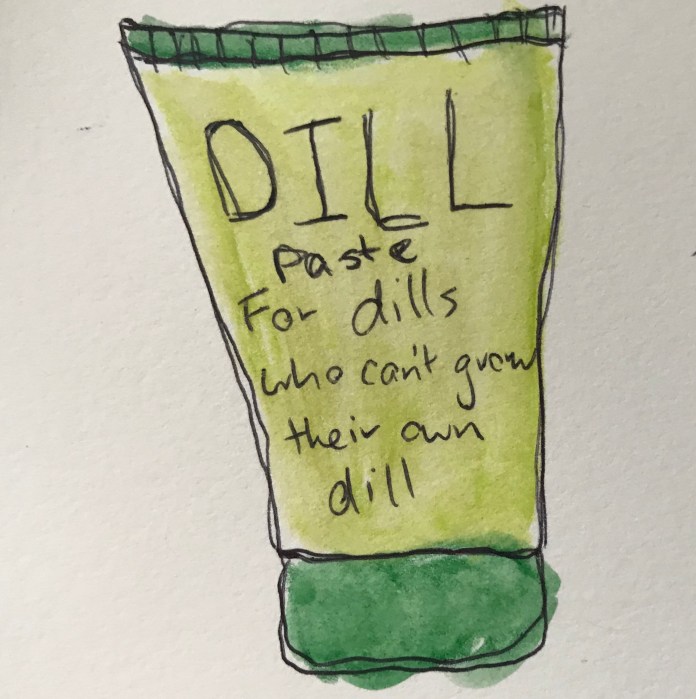 DILL
paste
For dills
who can't grow
their own
dill